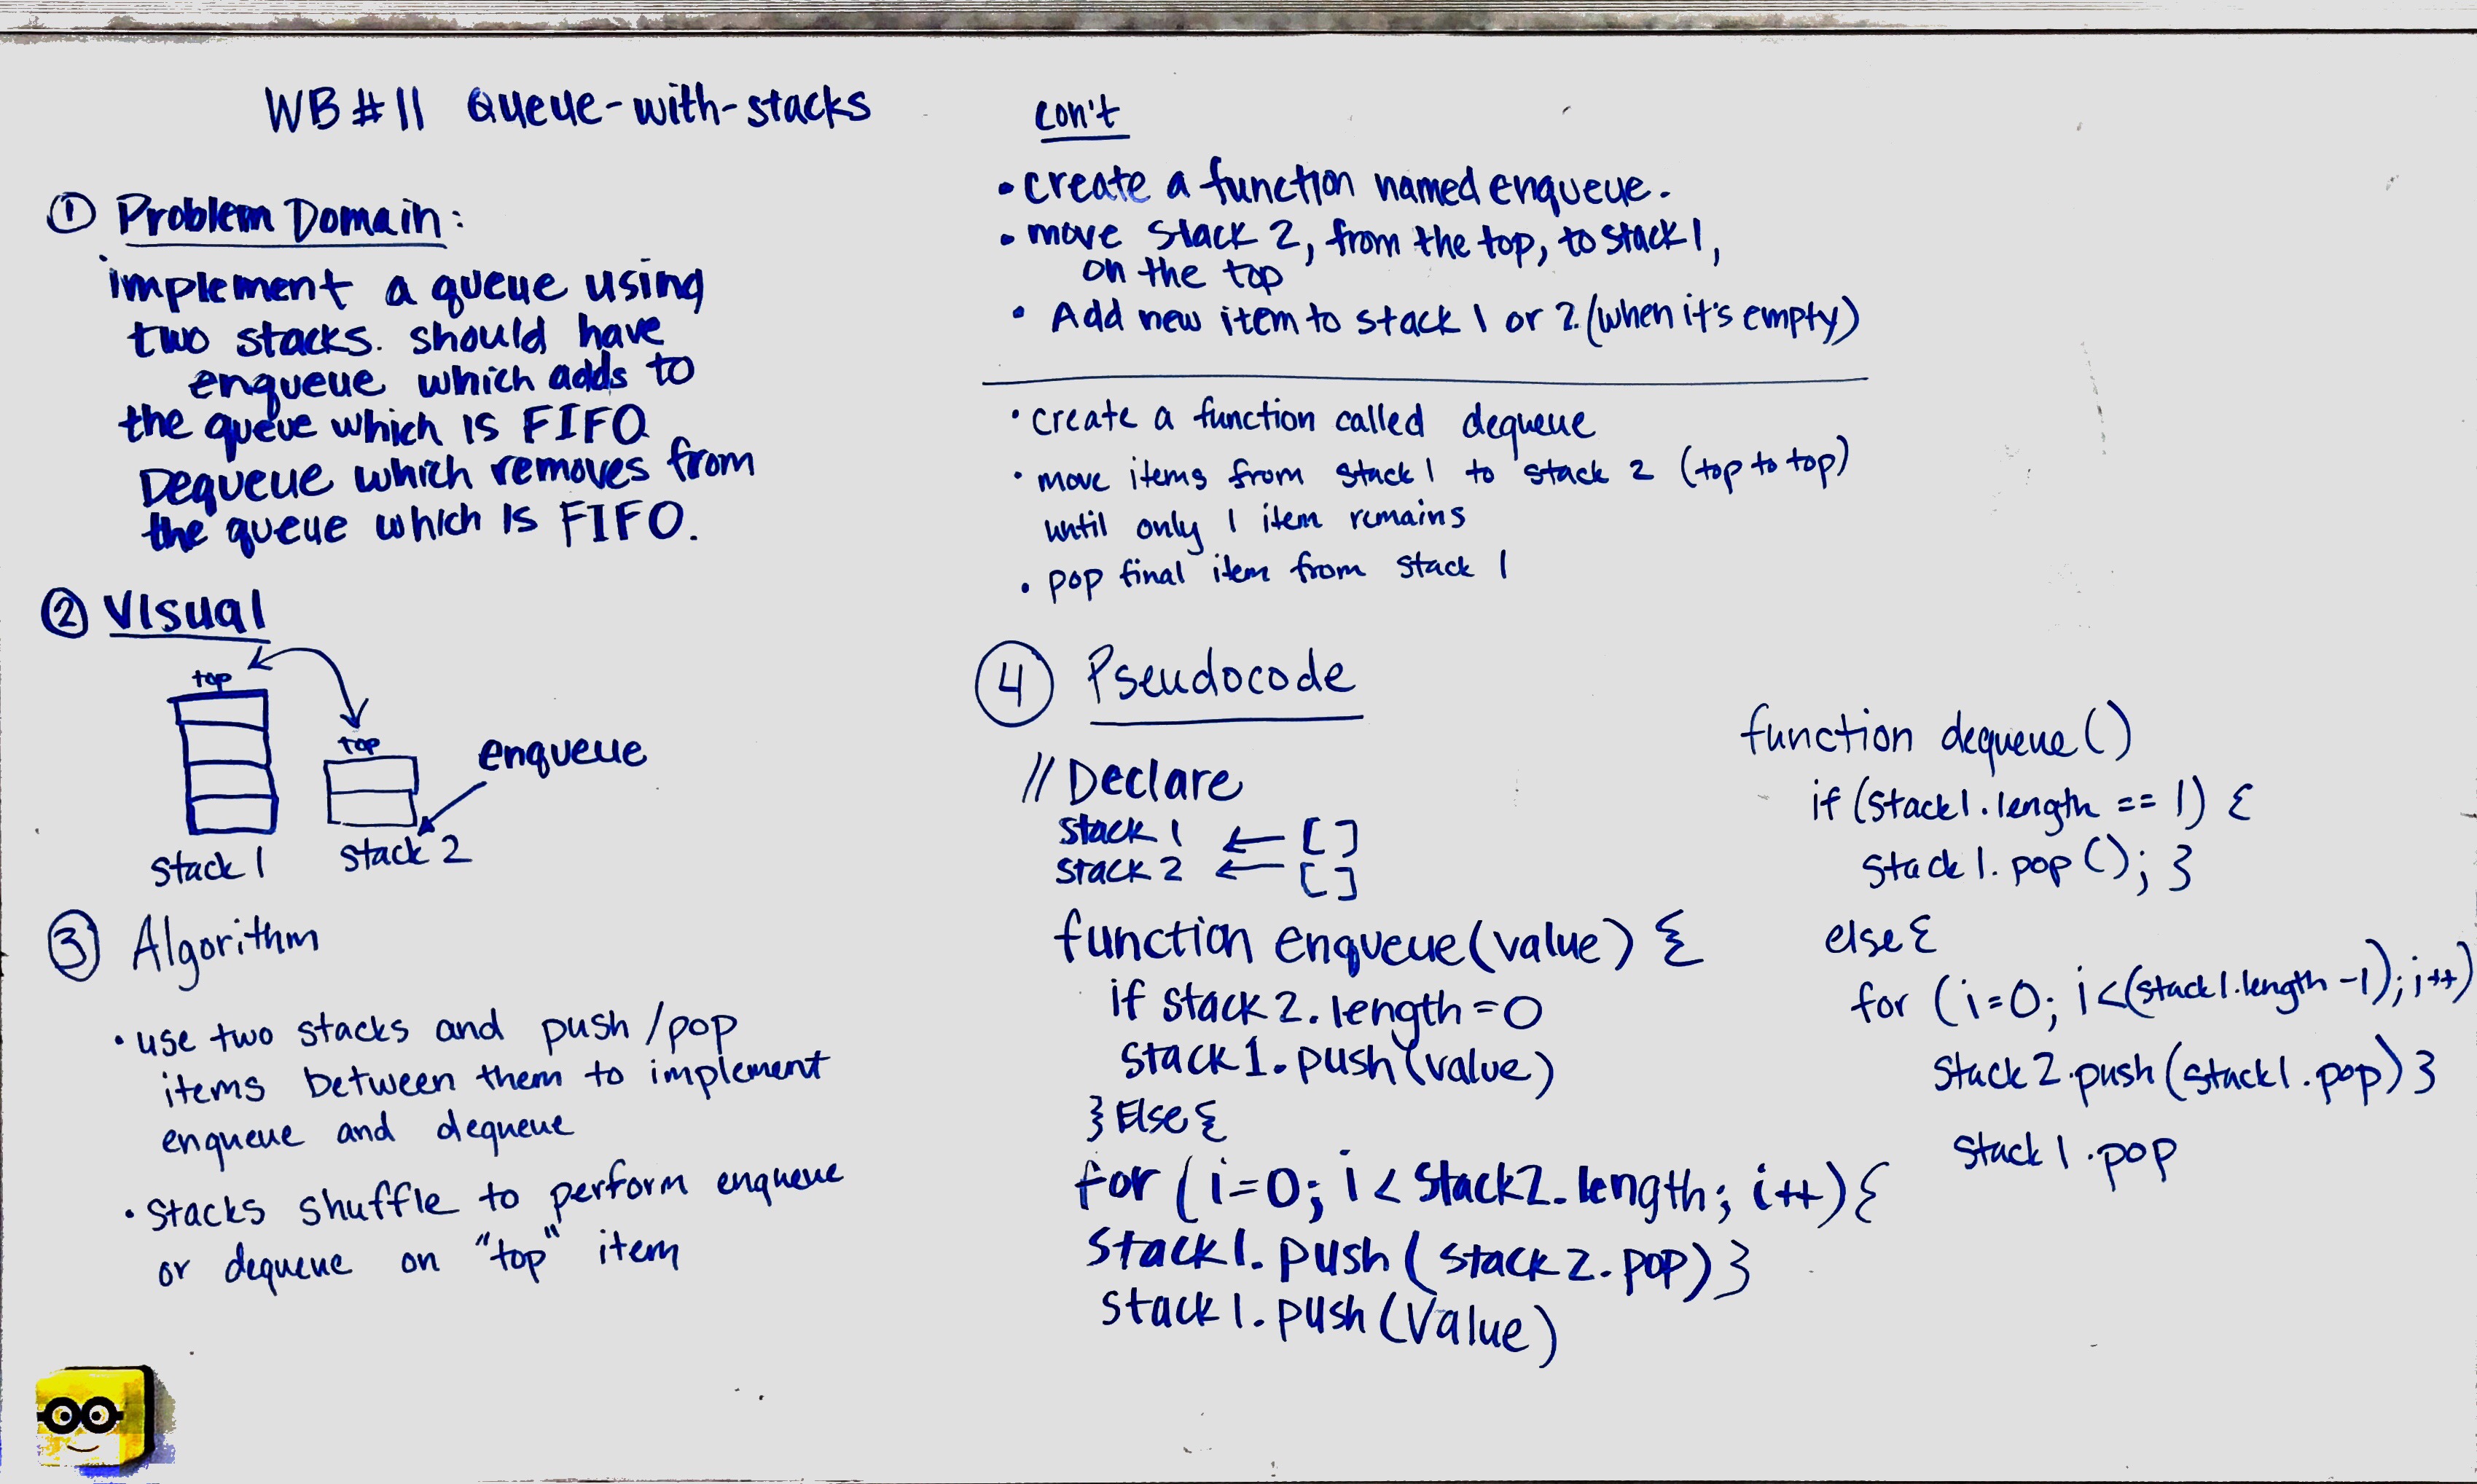 WB #11 Queue-with-stacks
① Problem Domain:
implement a queue using
two stacks. should have
enqueue which adds to
the queue which is FIFO
Dequeue which removes from
the queue which is FIFO.
② Visual
top
top
enqueue
Stack 1
Stack 2
③ Algorithm
• use two stacks and push/pop
items between them to implement
enqueue and dequeue
• Stacks shuffle to perform enqueue
or dequeue on "top" item
con't
• create a function named enqueue.
• move stack 2, from the top, to stack 1,
on the top
• Add new item to stack 1 or 2 (when it's empty)
• create a function called dequeue
• move items from stack 1 to stack 2 (top to top)
until only 1 item remains
• pop final item from stack 1
④ Pseudocode
// Declare
stack 1 ← []
stack 2 ← []
function enqueue(value) {
if stack2.length = 0
stack1.push(value)
} Else {
for (i=0; i < stack2.length; i++) {
stack1.push(stack2.pop) }
stack1.push(value)
function dequeue()
if (stack1.length == 1) {
stack1.pop(); }
else {
for (i=0; i<(stack1.length -1); i++)
stack2.push(stack1.pop) }
stack1.pop